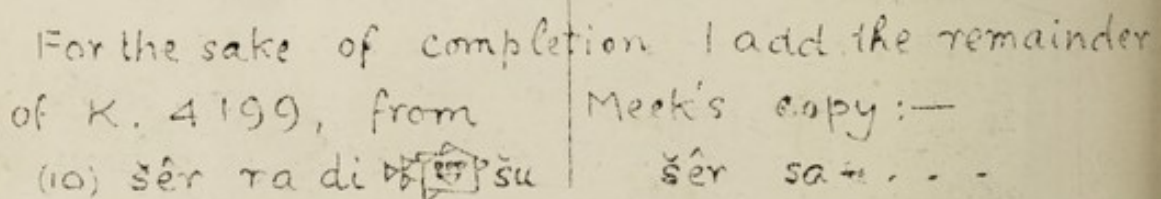 For the sake of completion I add the remainder
of K. 4199, from Meek's copy:—
(10) šêr ra di šu šêr sa- . . .